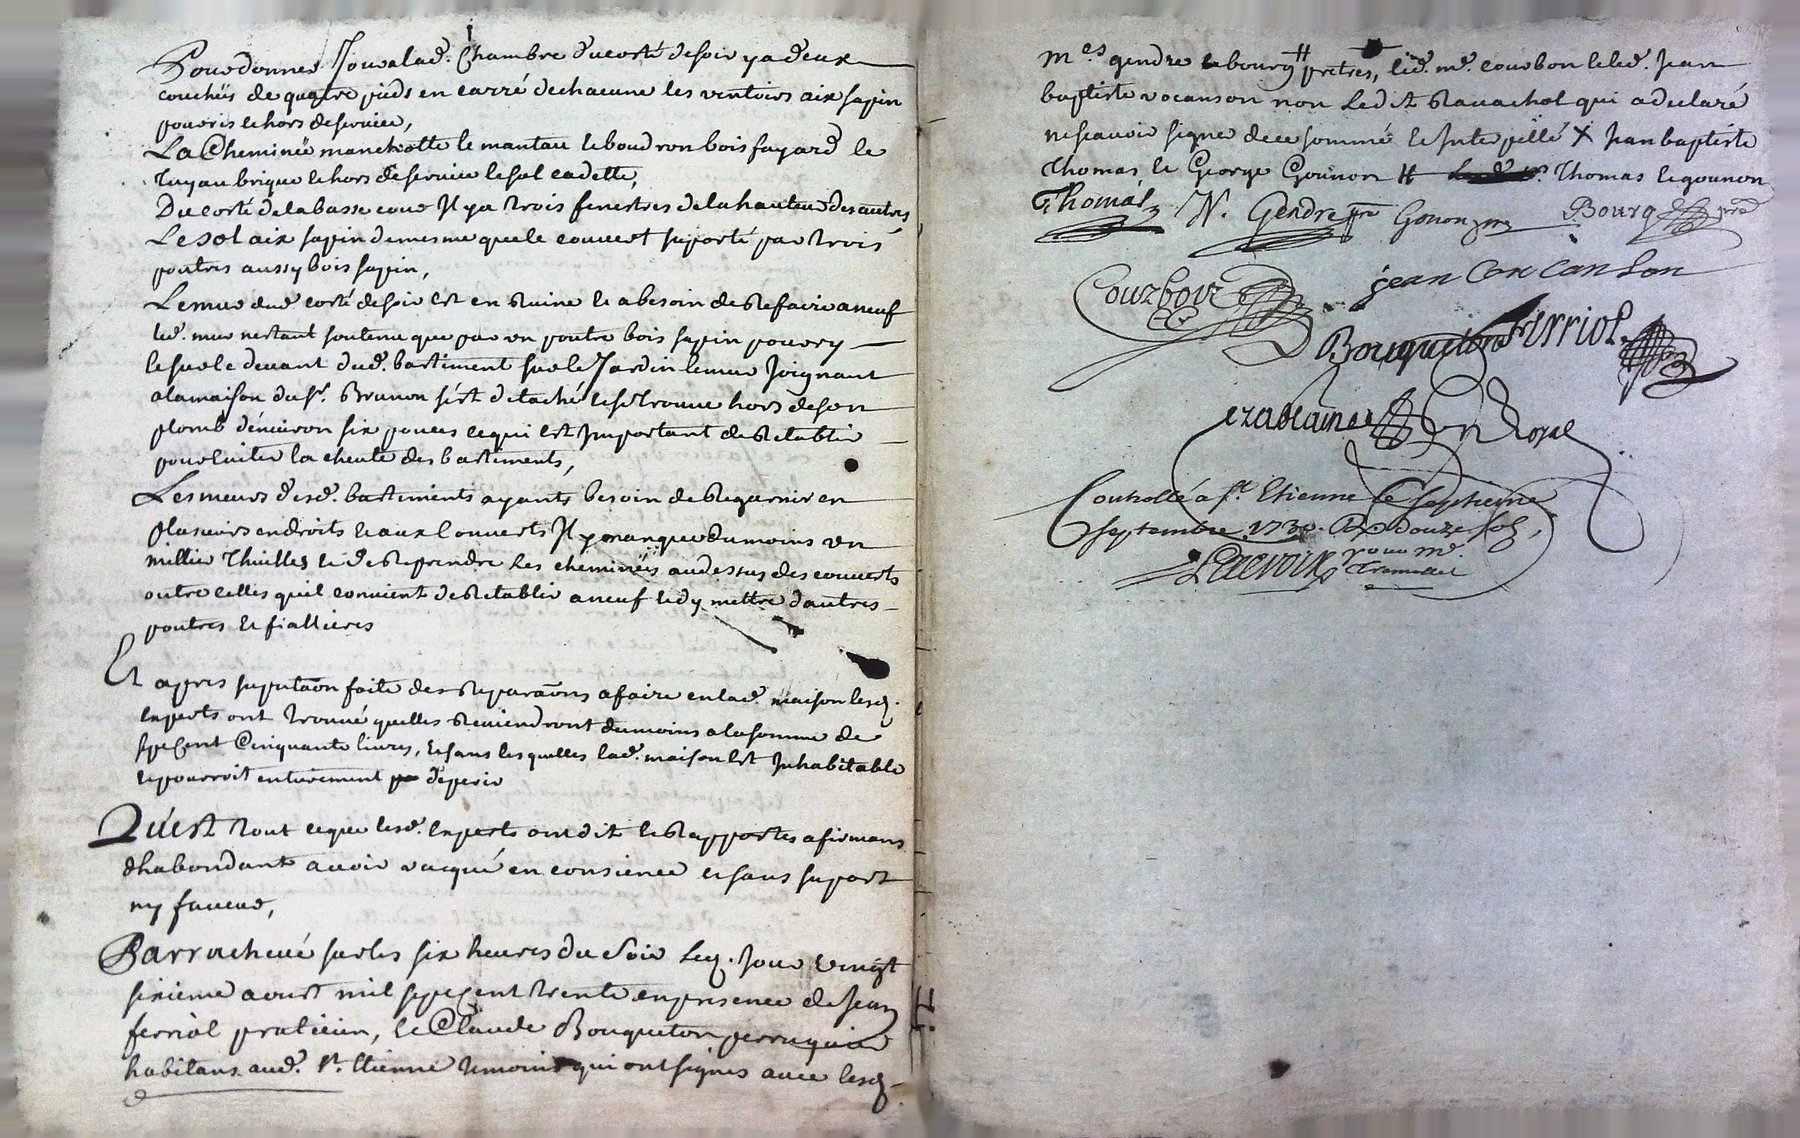 Pour donner Jour a lad. Chambre du costé de soir y a deux
couchiis de quatre pieds en carré de chacune les ventoirs aix sapin
pouvris et hors de service,
La Cheminée manchotte le mantau et boudron bois fayard le
Tuyau brique et hors de service le sol cadette,
Du costé de la basse cour Il y a trois fenestres de la hauteur des autres
Le sol aix sapin de mesme que le couvert suporté par trois
poutres aussy bois sapin,
Le mur dud. costé de soir est en Ruine et a besoin de Refaire a neuf
led. mur nestant soutenu que par un poutre bois sapin pouvry
et sur le devant dud. bastiment sur le Jardin le mur Joignant
a la maison du sr. Brunon s'est detaché et se trouve hors de son
plomb d'environ six pouces ce qui est Important de Retablir
pour Eviter la cheute des bastiments,
Les murs desd. bastiments ayants besoin de Regarnir en
plusieurs endroits et aux Couverts Il y manque du moins un
millier Thuilles et de Reprendre les cheminéés au dessus des couverts
outre celles quil convient de Retablir a neuf et dy mettre dautres
poutres et fiallieres
Et apres suputaôn faite des Reparaôns a faire en lad. maison lesd.
Experts ont Trouvé quelles Reviendront du moins a la somme de
sept Cent Cinquante livres, Et sans lesquelles lad. maison est Inhabitable
et pourroit entierement deperir
Qu'est Tout ce que lesd. Experts ont dit et Rapportes afirmans
d'habondant avoir vacqué en consience et sans suport
ny faveur,
Parrachevé sur les six heures du Soir led. Jour vingt
sixieme aoust mil sept Cent trente en presence de Jean
ferriol praticien, et Claude Bouqueton perruquier
habitans aud. St. Etienne temoins qui ont signes avec lesd.
mes gendre et bourg # prêtres, led. me. courbon et led. Jean
baptiste vocanson non Ledit Ravachol qui a declaré
ne scavoir signe de ce sommé et Interpellé X Jean baptiste
Thomas et George Gounon # Thomas et gounon
Thomas N. Gendre pre Gonon Bourg pre
Courbon jean vocanson
Bouqueton Ferriol
Royal
Controllé a St. Etienne le septieme
septembre 1730. R douze sols,
Delacroix pour mr.
Tramollet